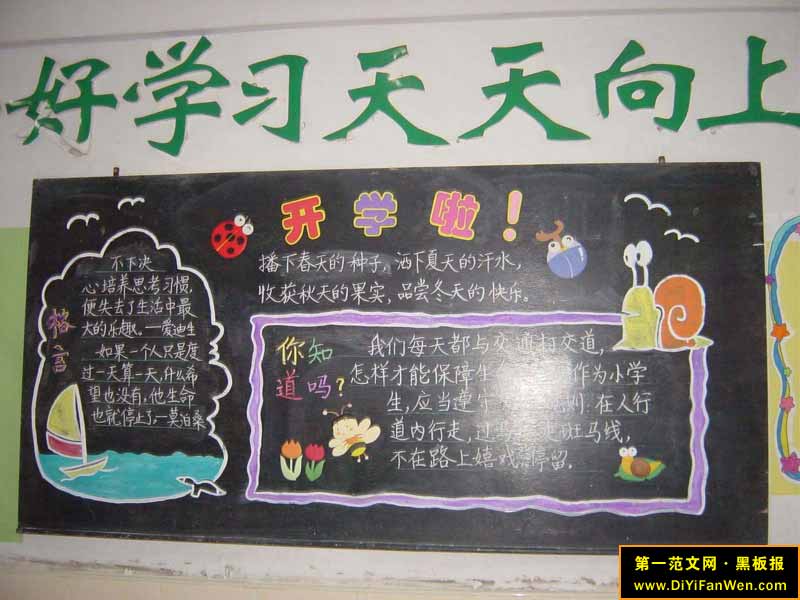 好学习天天向上
开学啦！
播下春天的种子，洒下夏天的汗水，
收获秋天的果实，品尝冬天的快乐。
格言
不下决
心培养思考习惯，
便失去了生活中最
大的乐趣。—爱迪生
如果一个人只是度
过一天算一天，什么希
望也没有，他生命
也就停止了。—莫泊桑
你知
道吗？
我们每天都与交通打交道，
怎样才能保障生 作为小学
生，应当遵守 则：在人行
道内行走，过 走斑马线，
不在路上嬉戏 停留。
第一范文网·黑板报
www.DiYiFanWen.com